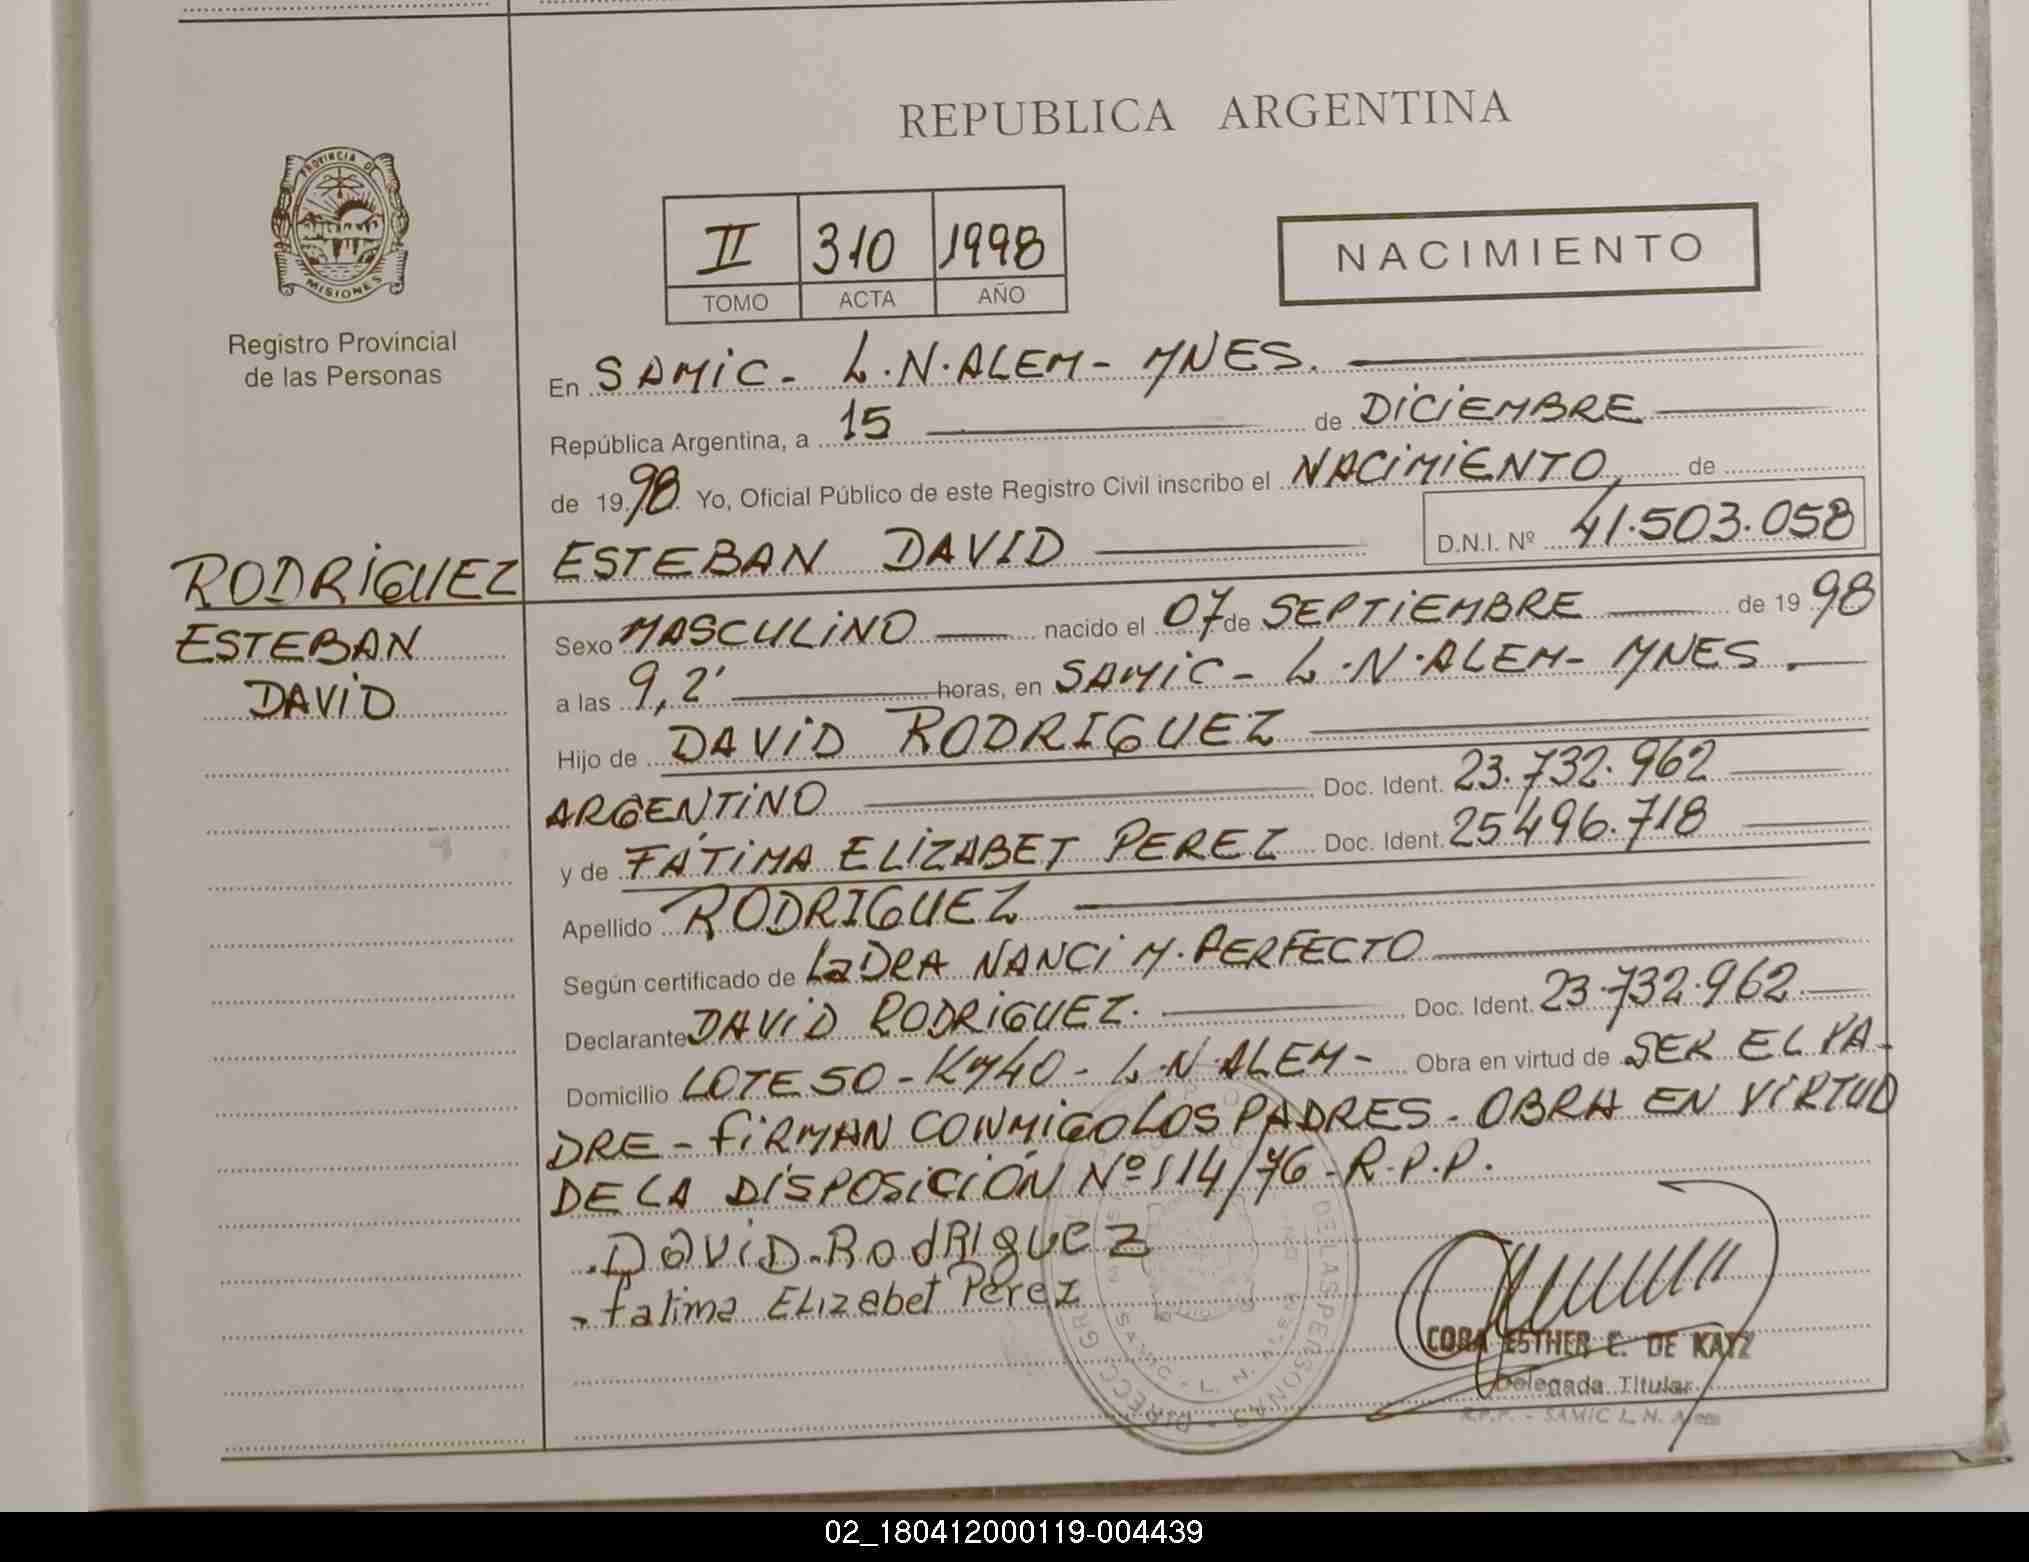 REPUBLICA ARGENTINA
PROVINCIA DE
MISIONES
II 310 1998
TOMO ACTA AÑO
NACIMIENTO
Registro Provincial
de las Personas
En SAMIC - L.N.ALEM - MNES.
República Argentina, a 15 de DICIEMBRE
de 1998 Yo, Oficial Público de este Registro Civil inscribo el NACIMIENTO de
D.N.I. Nº 41.503.058
RODRIGUEZ ESTEBAN DAVID
ESTEBAN
DAVID
Sexo MASCULINO nacido el 07 de SEPTIEMBRE de 1998
a las 9,2' horas, en SAMIC - L.N.ALEM - MNES.
Hijo de DAVID RODRIGUEZ
ARGENTINO Doc. Ident. 23.732.962
y de FATIMA ELIZABET PEREZ Doc. Ident. 25496.718
Apellido RODRIGUEZ
Según certificado de La DRA NANCI M. PERFECTO
Declarante DAVID RODRIGUEZ. Doc. Ident. 23.732.962
Domicilio LOTE 50 - KM40 - L.N.ALEM - Obra en virtud de SER EL PA-
DRE - FIRMAN CONMIGO LOS PADRES - OBRA EN VIRTUD
DE LA DISPOSICIÓN Nº 114/76 - R.P.P.
DaViD RodRIguez
fatima ELizabet Perez
CORA ESTHER C. DE KATZ
Delegada Titular
R.P.P. - SAMIC L. N. Alem
02_180412000119-004439